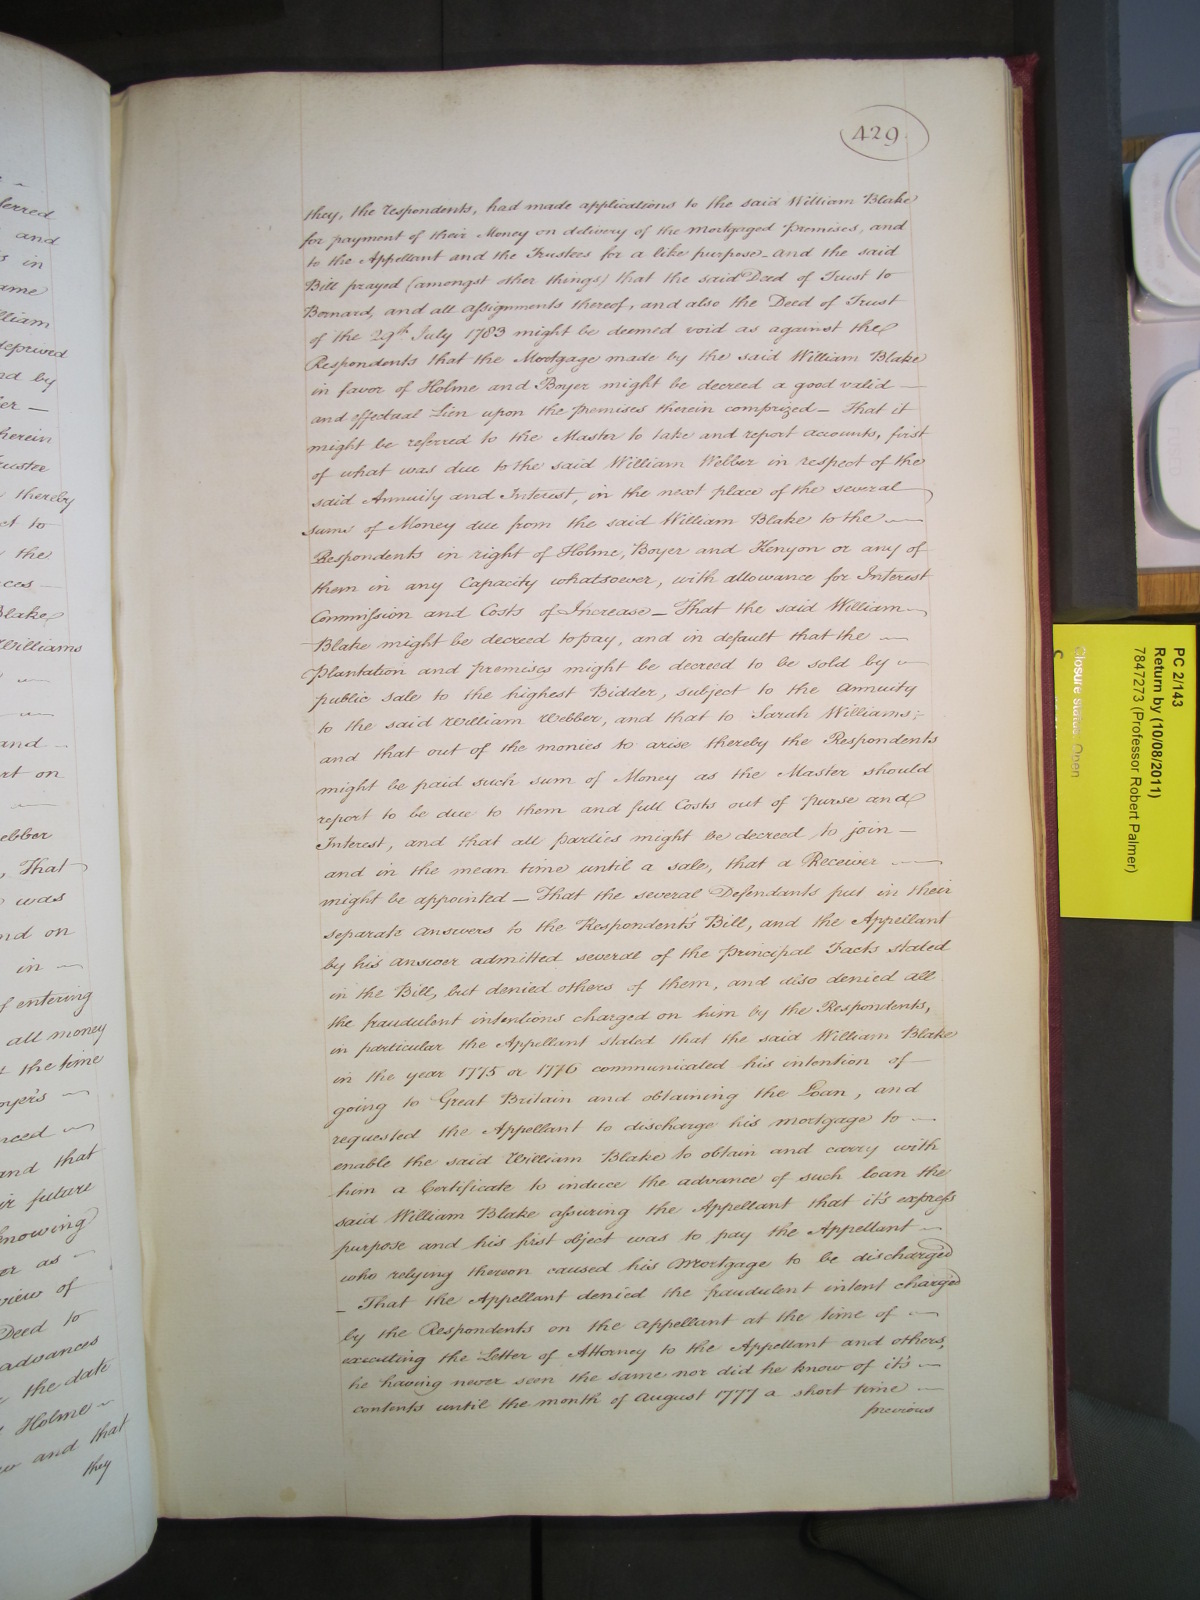 429
they, the respondents, had made applications to the said William Blake
for payment of their Money on delivery of the mortgaged premises, and
to the Appellant and the Trustees for a like purpose - and the said
Bill prayed (amongst other things) that the said Deed of Trust to
Bernard, and all assignments thereof, and also the Deed of Trust
of the 29th July 1783 might be deemed void as against the
Respondents that the Mortgage made by the said William Blake
in favor of Holme and Boyer might be decreed a good valid —
and effectual Lien upon the premises therein comprized — That it
might be referred to the Master to take and report accounts, first
of what was due to the said William Webber in respect of the
said Annuity and Interest, in the next place of the several
sums of Money due from the said William Blake to the —
Respondents in right of Holme, Boyer and Kenyon or any of
them in any Capacity whatsoever, with allowance for Interest
Commission and Costs of Increase — That the said William
Blake might be decreed to pay, and in default that the —
Plantation and premises might be decreed to be sold by —
public sale to the highest Bidder, subject to the Annuity
to the said William Webber, and that to Sarah Williams;
and that out of the monies to arise thereby the Respondents
might be paid such sum of Money as the Master should
report to be due to them and full Costs out of purse and
Interest, and that all parties might be decreed to join —
and in the mean time until a sale, that a Receiver —
might be appointed — That the several Defendants put in their
separate answers to the Respondent's Bill, and the Appellant
by his answer admitted several of the principal Facts stated
in the Bill, but denied others of them, and also denied all
the fraudulent intentions charged on him by the Respondents,
in particular the Appellant stated that the said William Blake
in the year 1775 or 1776 communicated his intention of —
going to Great Britain and obtaining the Loan, and
requested the Appellant to discharge his mortgage to —
enable the said William Blake to obtain and carry with
him a Certificate to induce the advance of such loan the
said William Blake assuring the Appellant that it's express
purpose and his first object was to pay the Appellant —
who relying thereon caused his Mortgage to be discharged
— That the Appellant denied the fraudulent intent charged
by the Respondents on the appellant at the time of —
executing the Letter of Attorney to the Appellant and others,
he having never seen the same nor did he know of it's —
contents until the month of August 1777 a short time —
previous
ferred
and
in
liam
deprived
nd by
er —
herein
thereby
ct to
the
Blake
Williams
and
rt on
ebber
That
was
nd on
in —
f entering
all money
the time
and that
future
knowing
er as —
view of
Deed to
advances
the date
Holme
and that
they
PC 2/143
Return by (10/08/2011)
7847273 (Professor Robert Palmer)
Closure status: Open